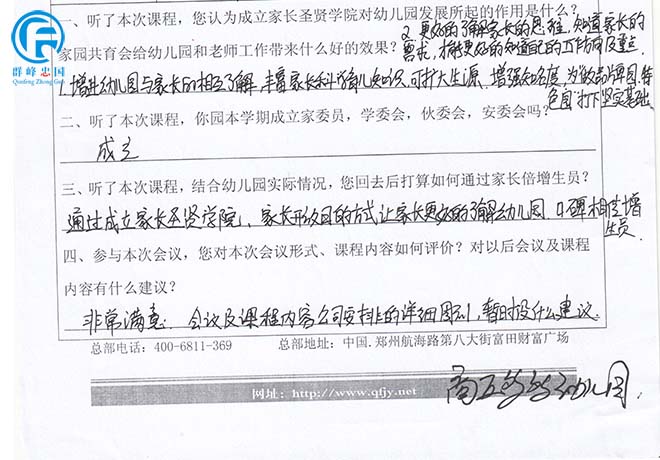 群峰忠国
Qunfeng Zhong Guo
一、听了本次课程，您认为成立家长圣贤学院对幼儿园发展所起的作用是什么？
家园共育会给幼儿园和老师工作带来什么好的效果？
2、更好的了解家长的思维，知道家长的
需求，才能更好的知道自己的工作方向及重点
1.增进幼儿园与家长的相互了解，丰富家长科学育儿知识，可扩大生源，增强知名度，为做品牌园、特
色园打下坚实基础
二、听了本次课程，你园本学期成立家委员，学委会，伙委会，安委会吗？
成立
三、听了本次课程，结合幼儿园实际情况，您回去后打算如何通过家长倍增生员？
通过成立家长圣贤学院、家长开放日的方式让家长更好的了解幼儿园，口碑相传增
生员
四、参与本次会议，您对本次会议形式、课程内容如何评价？对以后会议及课程
内容有什么建议？
非常满意：会议及课程内容公司安排的详细周到，暂时没什么建议
总部电话：400-6811-369 总部地址：中国.郑州航海路第八大街富田财富广场
网址：http://www.qfjy.net
幼儿园